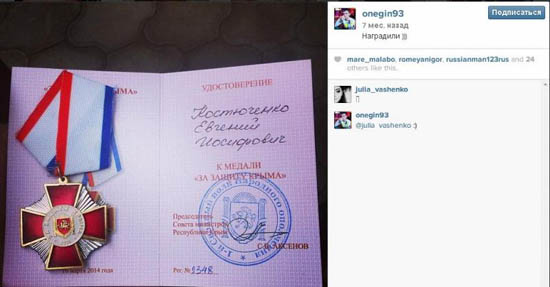 УДОСТОВЕРЕНИЕ
Костюченко
Евгений
Иосифович
К МЕДАЛИ
"ЗА ЗАЩИТУ КРЫМА"
Председатель
Совета министров
Республики Крым
С.В. АКСЕНОВ
марта 2014 года
Рег. № 2348
onegin93
7 мес. назад
Подписаться
Наградили )))
mare_malabo, romeyanigor, russianman123rus and 24
others like this.
julia_vashenko
onegin93
@julia_vashenko :)